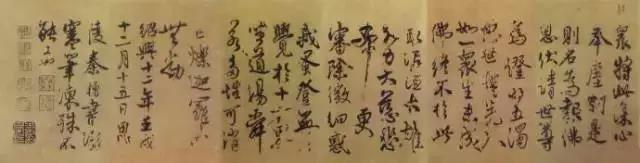 衆將此深心
奉塵剎是
則名為報佛
恩伏請世尊
為證明五濁
惡世誓先入
如一衆生未成
佛終不於此
取泥洹大雄
大力大慈悲
希更
審除微細惑
我早登無上
覺於十方界
坐道場舜
若多性可消
亡爍迦羅心
無動
紹興十二年壬戌
十二月十五日思
陵秦檜書
寒筆凍殊不
能工